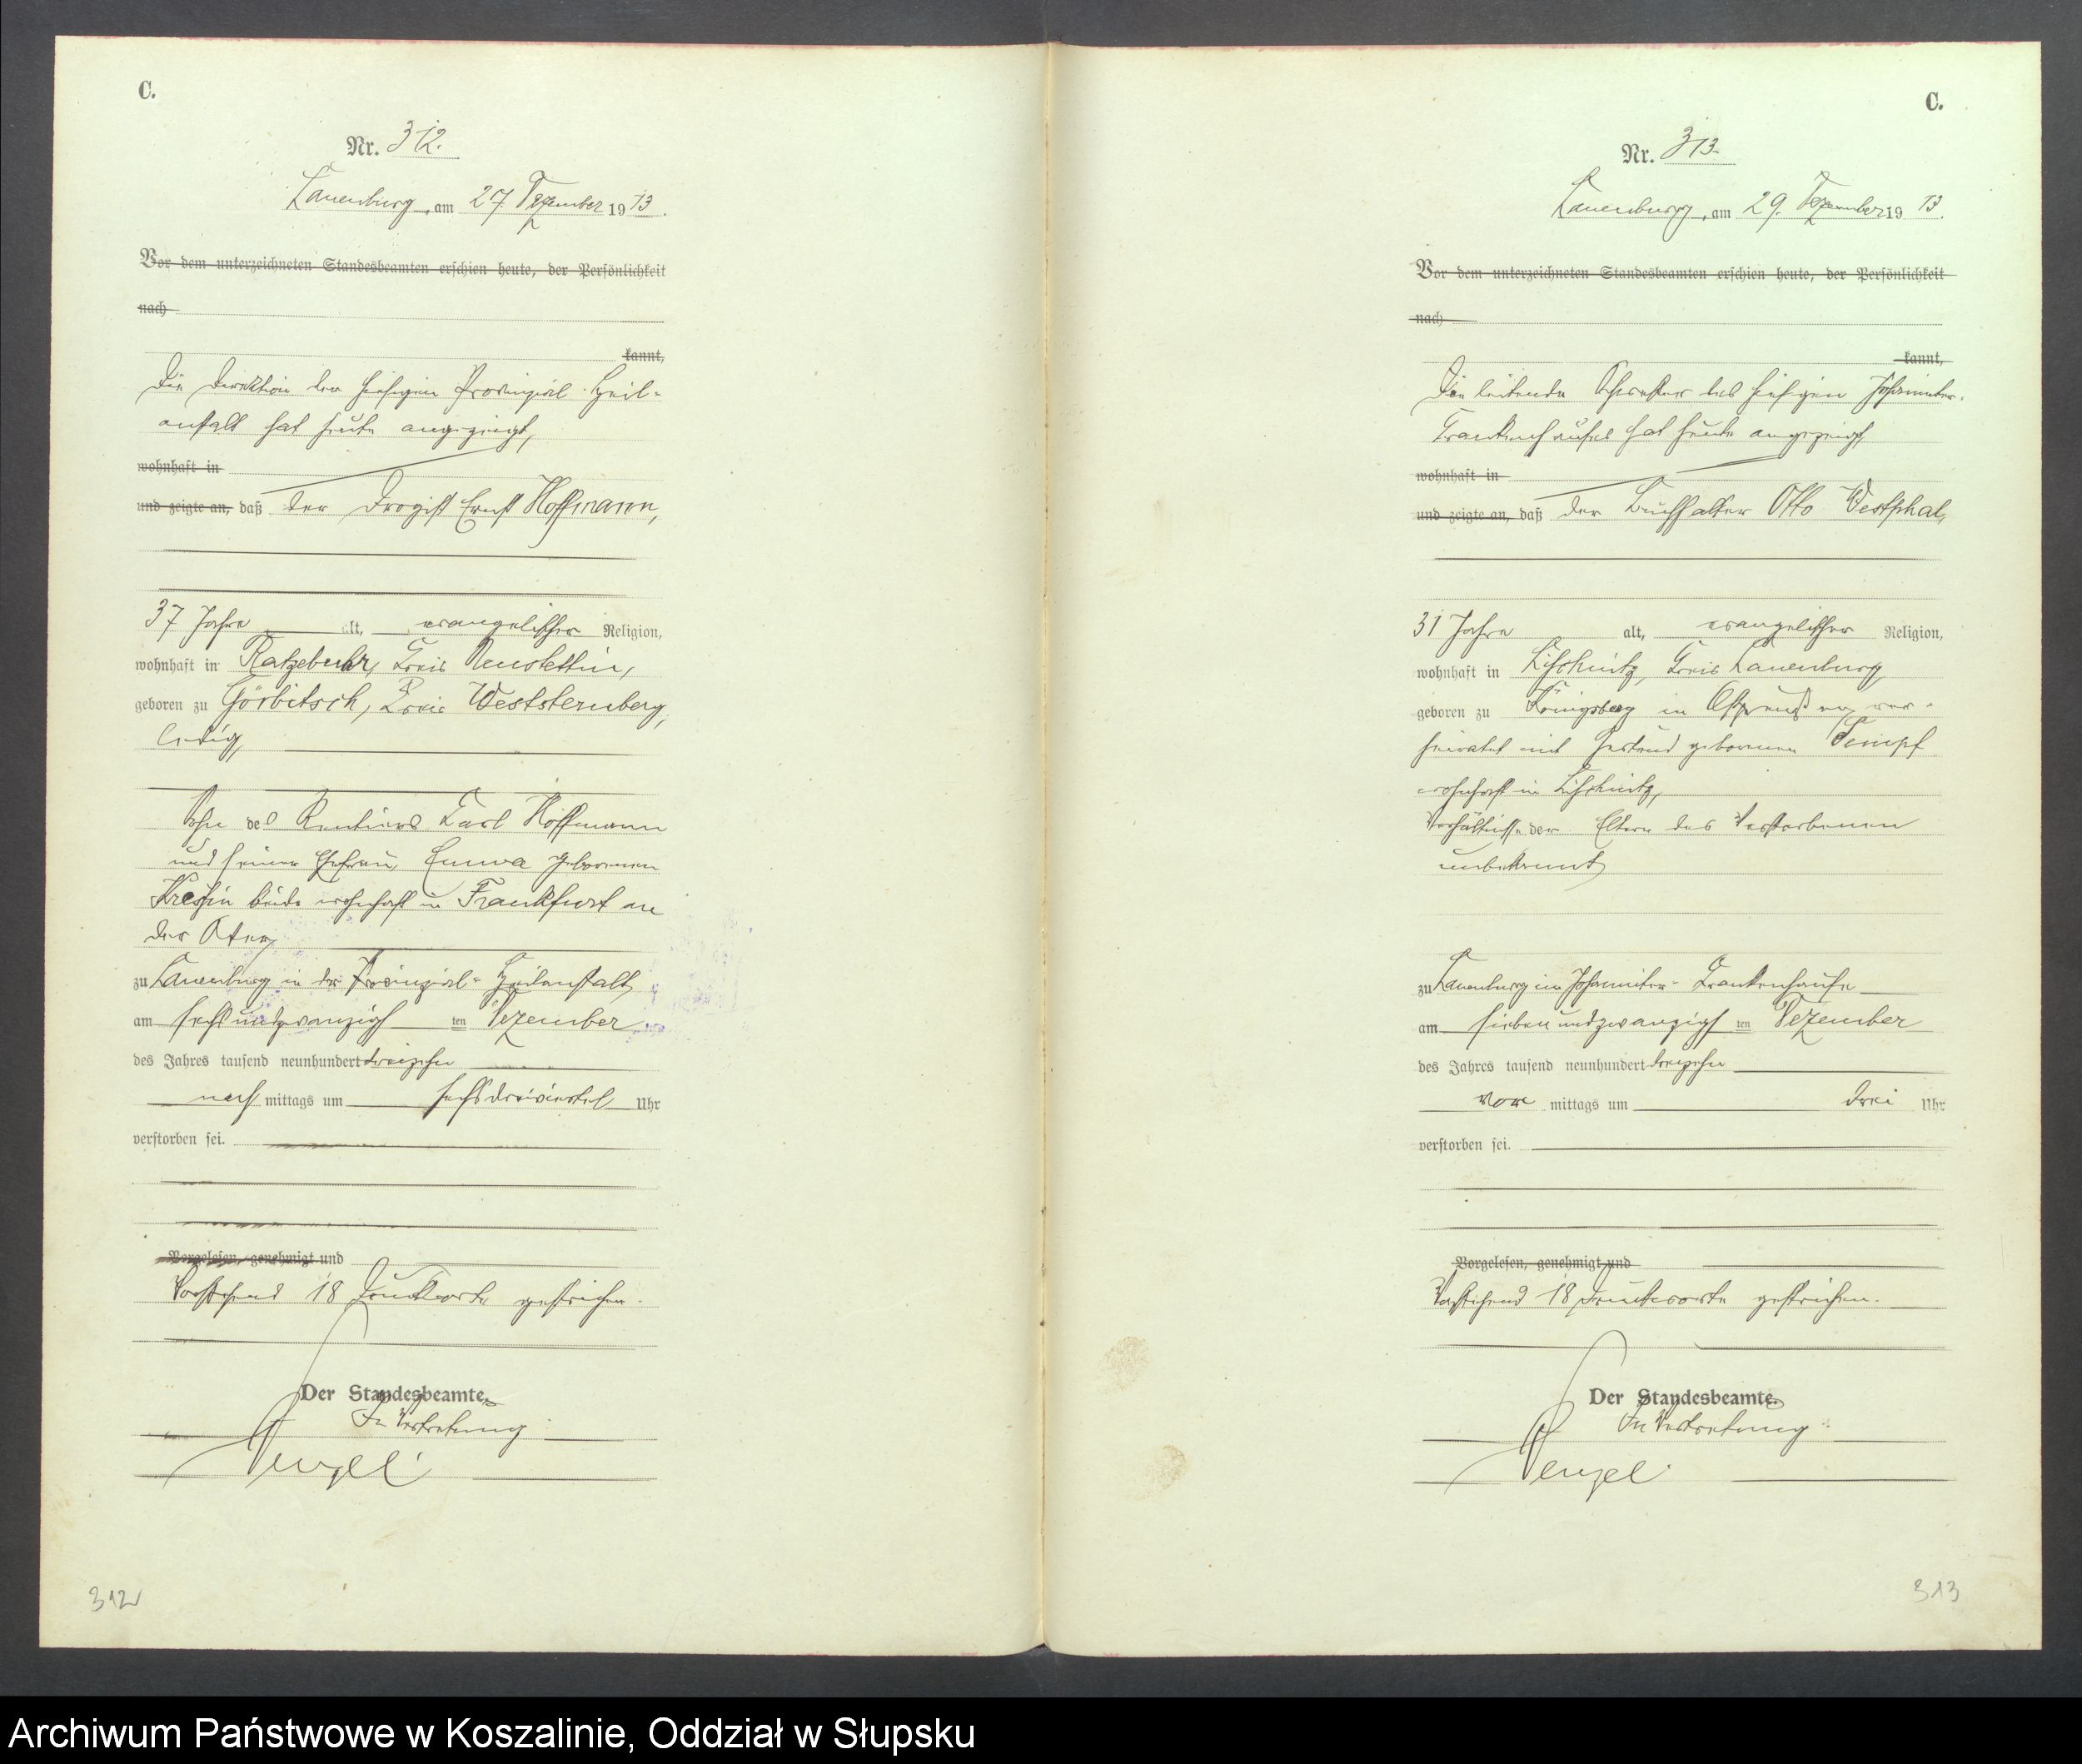 C.
Nr. 312.
Lauenburg, am 27. Dezember 1913.
Vor dem unterzeichneten Standesbeamten erschien heute, der Persönlichkeit
nach
kannt,
Die Direktion der hiesigen Provinzial-Heil-
anstalt hat heute angezeigt,
wohnhaft in
und zeigte an, daß der Drogist Ernst Hoffmann,
37 Jahre alt, evangelischer Religion,
wohnhaft in Ratzebuhr, Kreis Neustettin,
geboren zu Görbitsch, Kreis Weststernberg,
ledig,
Sohn des Rentiers Karl Hoffmann
und seiner Ehefrau Emma geborenen
beide wohnhaft in Frankfurt an
der Oder,
zu Lauenburg in der Provinzial-Heilanstalt,
am sechsundzwanzigsten Dezember
des Jahres tausend neunhundert dreizehn
nachmittags um sechsdreiviertel Uhr
verstorben sei.
Vorgelesen, genehmigt und
Vorstehend 18 Druckworte gestrichen.
Der Standesbeamte.
In Vertretung
312
C.
Nr. 313.
Lauenburg, am 29. Dezember 1913.
Vor dem unterzeichneten Standesbeamten erschien heute, der Persönlichkeit
nach
kannt,
Die leitende Schwester des hiesigen Johanniter-
Krankenhauses hat heute angezeigt,
wohnhaft in
und zeigte an, daß der Buchhalter Otto Westphal,
31 Jahre alt, evangelischer Religion,
wohnhaft in Lischnitz, Kreis Lauenburg
geboren zu Königsberg in Ostpreußen, ver-
heiratet mit Gertrud geborenen
wohnhaft in Lischnitz,
Verhältnisse der Eltern des Verstorbenen
unbekannt,
zu Lauenburg im Johanniter-Krankenhause
am siebenundzwanzigsten Dezember
des Jahres tausend neunhundert dreizehn
vormittags um drei Uhr
verstorben sei.
Vorgelesen, genehmigt und
Vorstehend 18 Druckworte gestrichen.
Der Standesbeamte.
In Vertretung
313
Archiwum Państwowe w Koszalinie, Oddział w Słupsku